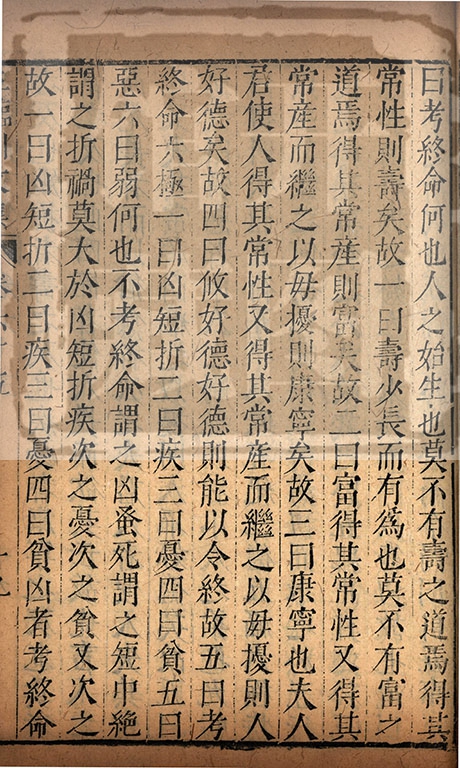 曰考終命何也人之始生也莫不有壽之道焉得其
常性則壽矣故一曰壽少長而有爲也莫不有富之
道焉得其常産則富矣故二曰富得其常性又得其
常産而繼之以毋擾則康寧矣故三曰康寧也夫人
君使人得其常性又得其常産而繼之以毋擾則人
好德矣故四曰攸好德好德則能以令終故五曰考
終命六極一曰凶短折二曰疾三曰憂四曰貧五曰
惡六曰弱何也不考終命謂之凶蚤死謂之短中絕
謂之折禍莫大於凶短折疾次之憂次之貧又次之
故一曰凶短折二曰疾三曰憂四曰貧凶者考終命